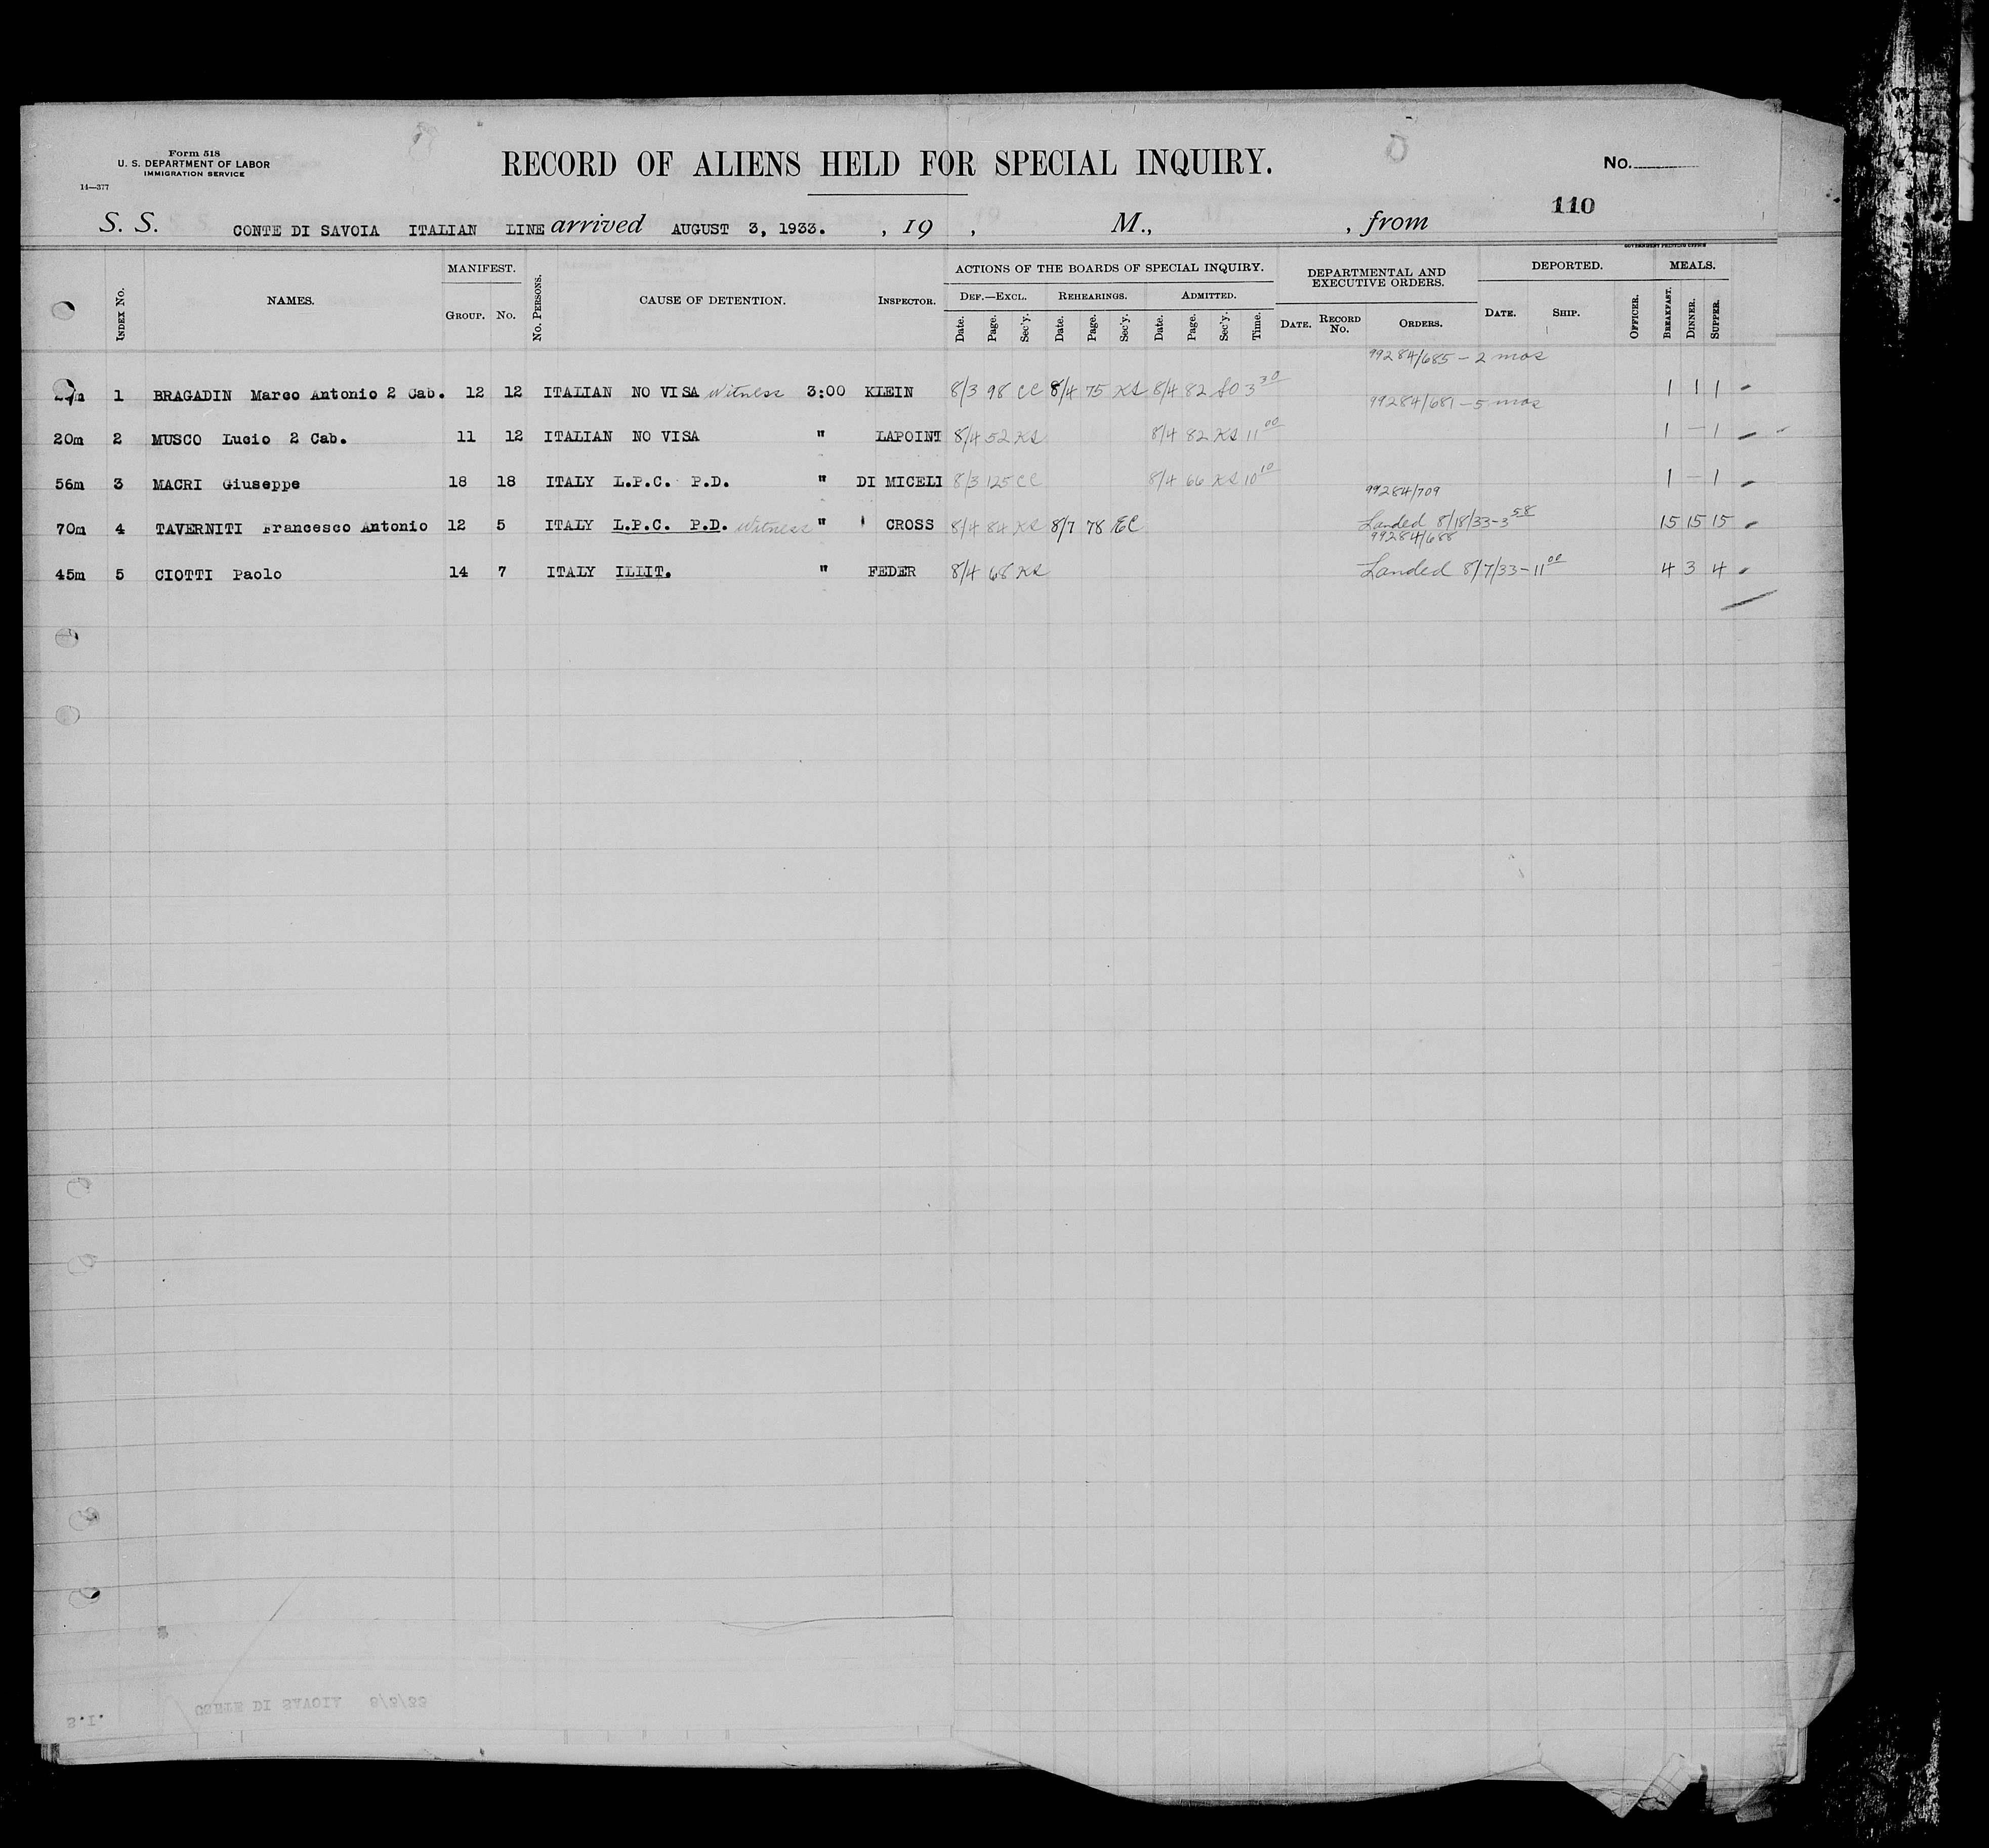 Form 518
U. S. DEPARTMENT OF LABOR
IMMIGRATION SERVICE
14—377
RECORD OF ALIENS HELD FOR SPECIAL INQUIRY.
No.
110
S. S. CONTE DI SAVOIA ITALIAN LINE arrived AUGUST 3, 1933. , 19 , M., , from
GOVERNMENT PRINTING OFFICE
INDEX No. NAMES. MANIFEST. GROUP. No. No. PERSONS. CAUSE OF DETENTION. INSPECTOR. ACTIONS OF THE BOARDS OF SPECIAL INQUIRY. DEF.—EXCL. Date. Page. Sec'y. REHEARINGS. Date. Page. Sec'y. ADMITTED. Date. Page. Sec'y. Time. DEPARTMENTAL AND EXECUTIVE ORDERS. DATE. RECORD No. ORDERS. DEPORTED. DATE. SHIP. OFFICER. MEALS. BREAKFAST. DINNER. SUPPER.
99284/685 - 2 mos
1 BRAGADIN Marco Antonio 2 Cab. 12 12 ITALIAN NO VISA Witness 3:00 KLEIN 8/3 98 CC 8/4 75 KS 8/4 82 3 30 1 1 1
99284/681 - 5 mos
20m 2 MUSCO Lucio 2 Cab. 11 12 ITALIAN NO VISA " LAPOINT 8/4 52 KS 8/4 82 KS 11 00 1 — 1
56m 3 MACRI Giuseppe 18 18 ITALY L.P.C. P.D. " DI MICELI 8/3 125 CC 8/4 66 KS 10 10 1 — 1
99284/709
70m 4 TAVERNITI Francesco Antonio 12 5 ITALY L.P.C. P.D. Witness " CROSS 8/4 84 KS 8/7 78 EC Landed 8/18/33-3 58 15 15 15
99284/688
45m 5 CIOTTI Paolo 14 7 ITALY ILLIT. " FEDER 8/4 68 KS Landed 8/7/33-11 00 4 3 4
CONTE DI SAVOIA 8/3/33
S.I.